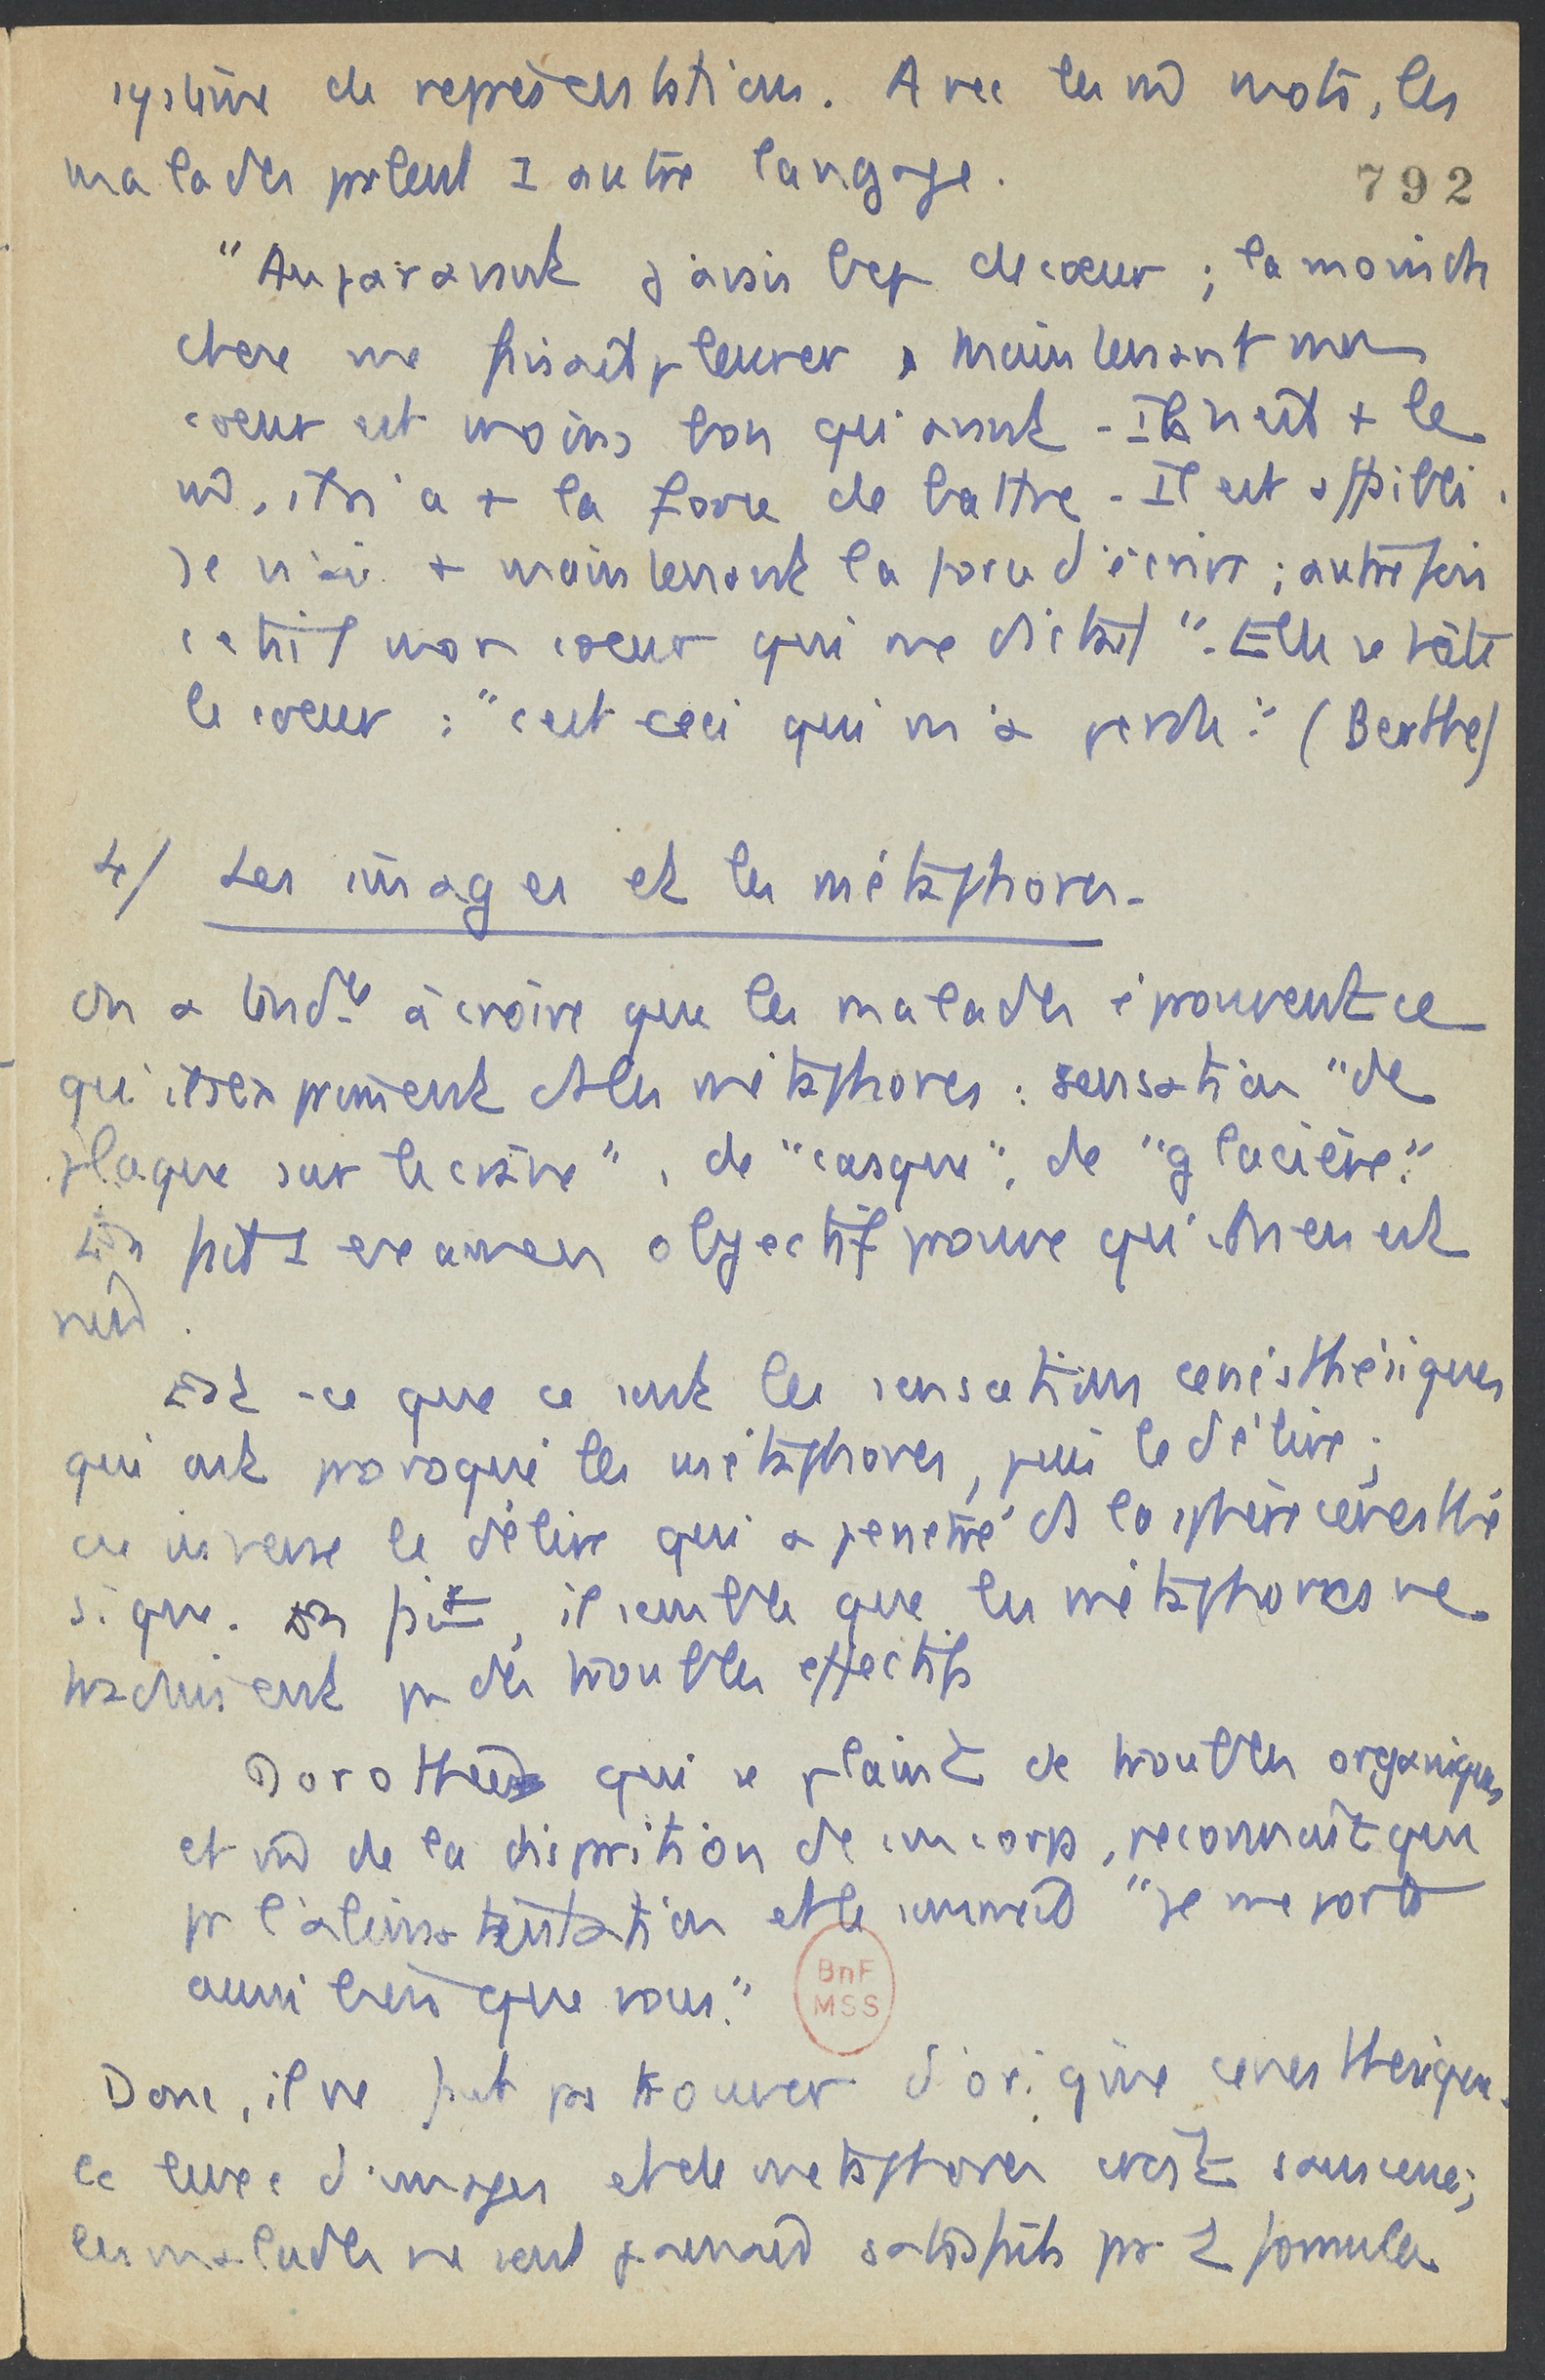 système de représentations. Avec les m̂ mots, les
malades parlent 1 autre langage.
792
"Auparavant j'avais bcp de cœur ; la moindre
chose me faisait pleurer, maintenant mon
cœur est moins bon qu'avant - Il n'est + le
m̂, il n'a + la force de battre - Il est affaibli.
Je n'ai + maintenant la force d'écrire ; autrefois
c'était mon cœur qui me dictait". Elle se tâte
le cœur : "c'est ceci qui m'a perdu." (Berthe)
4/ Les images et les métaphores -
On a tendce à croire que les malades éprouvent ce
qu'ils expriment ds les métaphores : sensation "de
plaque sur le crâne", de "casque", de "glacière."
En fait 1 examen objectif prouve qu'il n'en est
rien.
Est-ce que ce sont les sensations cénesthésiques
qui ont provoqué les métaphores, puis le délire ;
ou inverse le délire qui a pénétré ds la sphère cénesthé
sique. En fait, il semble que les métaphores ne
traduisent pas des troubles effectifs
Dorothée qui se plaint de troubles organiques
et m̂ de la disparition de son corps, reconnaît que
pr l'alimentation et le sommeil "je me porte
aussi bien que vous."
Donc, il ne faut pas trouver d'origine cénesthésique.
Ce luxe d'images et de métaphores croît sans cesse ;
les malades ne sont jamais satisfaits par 1 formule
BnF
MSS